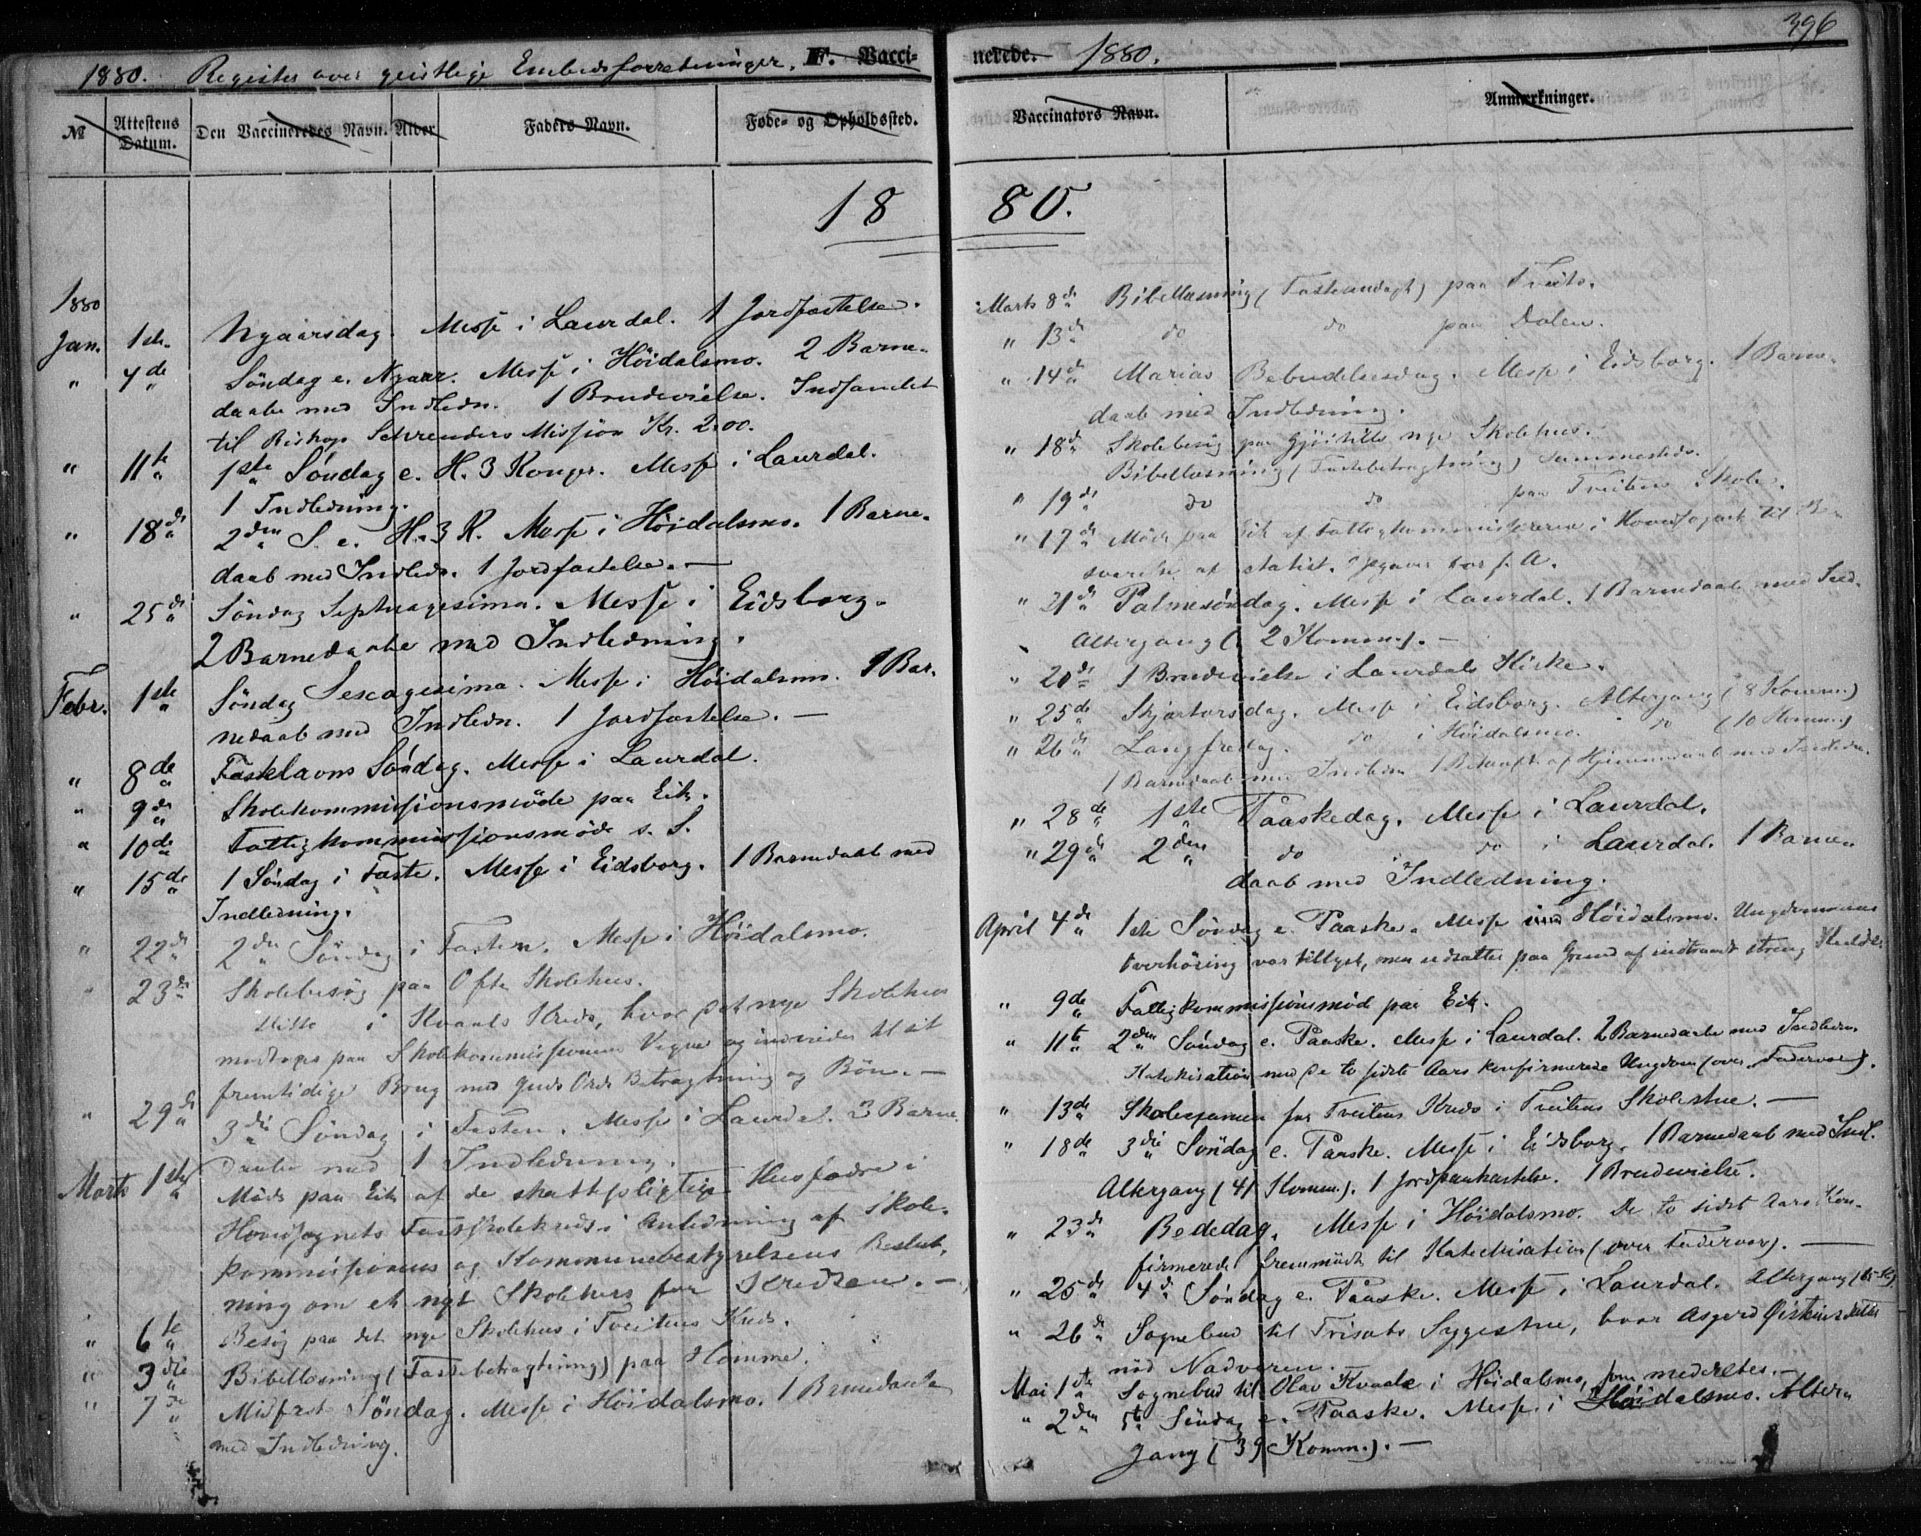 396
1880. Register over geistlige Embedsforretninger. F. Vacci-
№ Attestens Datum. Den Vaccineredes Navn. Alder Faders Navn. Føde- og Opholdssted.
18
1880
Jan. 1ste Nyaarsdag. Messe i Laurdal. 1 Jordfæstelse.
" 4de Søndag e. Nyaar. Messe i Höidalsmo. 2 Barne-
daabe med Indledn. 1 Brudevielse. Indsamlet
til Biskop Schreuders Mission Kr. 2.00.
" 11te 1ste Søndag e. H. 3 Konger. Messe i Laurdal.
1 Indledning.
" 18de 2den S. e. H. 3 K. Messe i Höidalsmo. 1 Barne-
daab med Indledn. 1 Jordfæstelse. —
" 25de Søndag Septuagesima. Messe i Eidsborg.
2 Barnedaabe med Indledning.
Febr. 1ste Søndag Sexagesima. Messe i Höidalsmo. 1 Bar-
nedaab med Indledn. 1 Jordfæstelse. —
" 8de Fastelavns Søndag. Messe i Laurdal.
" 9de Skolekommissionsmöde paa Eik.
" 10de Fattigkommissionsmöde s. S.
" 15de 1 Søndag i Faste. Messe i Eidsborg. 1 Barnedaab med
Indledning.
" 22de 2den Søndag i Fasten. Messe i Höidalsmo.
" 23de Skolebesøg paa Ofte Skolehus.
Ditto i Kvaals Kreds, hvor det nye Skolehus
modtoges paa Skolekommissionens Vegne og indviedes til sit
fremtidige Brug med Guds Ords Betragtning og Bön. —
" 29de 3die Søndag i Fasten. Messe i Laurdal. 3 Barne-
daabe med 1 Indledning.
Marts 1ste Möde paa Eik af de skattepligtige Husfædre i
Hovedsognets Fastskolekreds i Anledning af Skole-
kommissionens og Kommunebestyrelsens Beslut-
ning om et nyt Skolehus for Kredsen. —
" 6te Besøg paa det nye Skolehus i Tveitens Kreds.
" 3die Bibellæsning (Fastebetragtning) paa Homme.
" 7de Midfaste Søndag. Messe i Höidalsmo. 1 Barnedaab
med Indledning.
nerede. 1880.
Vaccinators Navn. Anmærkninger.
80.
Marts 8de Bibellæsning (Fasteandagt) paa Tveito.
" 13de do do paa Dalen.
" 14de Marias Bebudelsesdag. Messe i Eidsborg. 1 Barne-
daab med Indledning.
" 18de Skolebesøg paa nye Skolehus.
Bibellæsning (Fastebetragtning) sammesteds.
" 19de do do paa Tveiten Skole.
" 17de Möde paa Eik af Fattigkommissionen i Hovedsognet til Be-
svarelse af statist. Opgaver for f. A.
" 21de Palmesöndag. Messe i Laurdal. 1 Barnedaab med Ind.
Altergang (2 Komm.). —
" 20de 1 Brudevielse i Laurdals Kirke.
" 25de Skjærtorsdag. Messe i Eidsborg. Altergang (8 Komm.)
" 26de Langfredag. do i Höidalsmo. do (10 Komm.)
1 Barnedaab med Indledn. 1 af Hjemmedaab med Indledn.
" 28de 1ste Paaskedag. Messe i Laurdal.
" 29de 2den do do i Laurdal. 1 Barne-
daab med Indledning.
April 4de 1ste Søndag e. Paaske. Messe i Höidalsmo. Ungdommens
Overhöring var tillyst, men udsattes paa Grund af indtraadt streng Kulde.
" 9de Fattigkommissionsmöd paa Eik.
" 11te 2den Søndag e. Paaske. Messe i Laurdal. 2 Barnedaabe med Indledn.
Katekisation med de to sidste Aars konfirmerede Ungdom (over Fadervor).
" 13de Skoleexamen for Tveitens Kreds i Tveitens Skolestue. —
" 18de 3die Søndag e. Paaske. Messe i Eidsborg. 1 Barnedaab med Indl.
Altergang (41 Komm.). 1 Jordpaakastelse. 1 Brudevielse.
" 23de Bededag. Messe i Höidalsmo. De to sidst Aars Kon-
firmerede fremmödt til Katechisation (over Fadervor). —
" 25de 4de Søndag e. Paaske. Messe i Laurdal. Altergang
" 26de Sognebud til Trisæts Sygestue, hvor Asgerd Øisteinsdatter
nöd Nadveren.
Mai 1ste Sognebud til Olav Kvaale i Höidalsmo, som meddeltes. —
" 2den 5te Søndag e. Paaske. Messe i Höidalsmo. Alter-
gang (39 Komm.). —